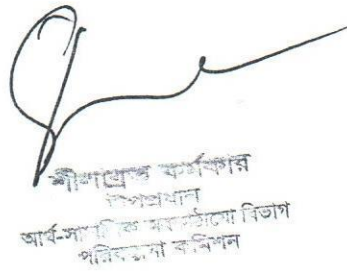 কর্মকার
উপপ্রধান
আর্থ-সামাজিক অবকাঠামো বিভাগ
পরিকল্পনা কমিশন